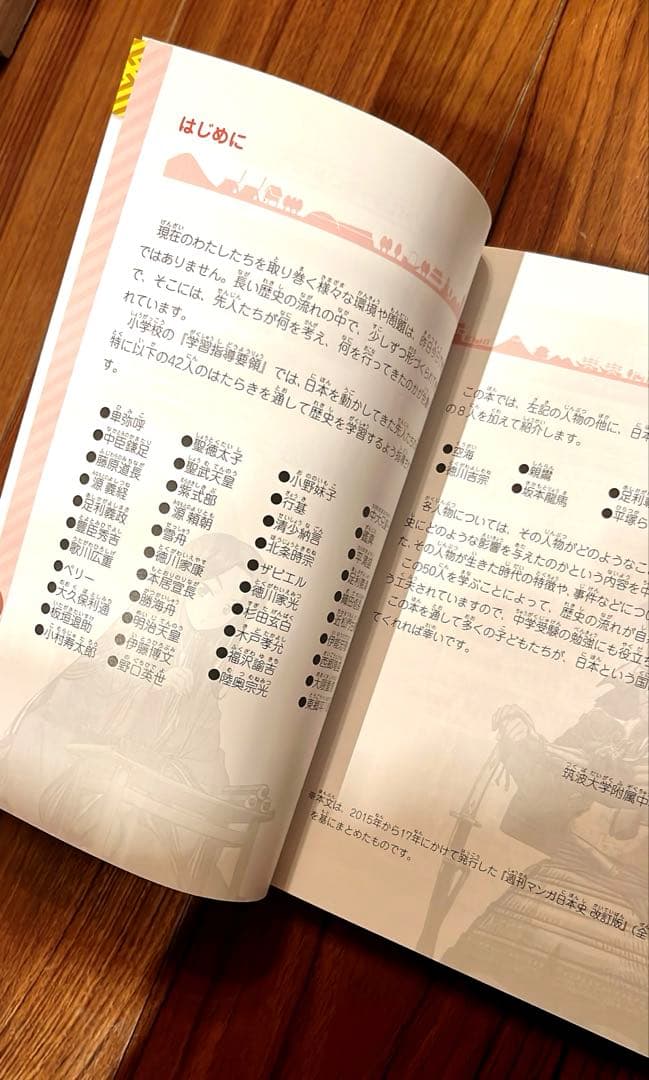 はじめに
現在のわたしたちを取り巻く様々な環境や問題は、昨日今日
ではありません。長い歴史の流れの中で、少しずつ形づくられて
で、そこには、先人たちが何を考え、何を行ってきたのかが
れています。
小学校の『学習指導要領』では、日本を動かしてきた先人たち
特に以下の42人のはたらきを通して歴史を学習するよう
す。
●卑弥呼 ●聖徳太子 ●小野妹子
●中臣鎌足 ●聖武天皇 ●行基
●藤原道長 ●紫式部 ●清少納言
●源義経 ●源頼朝 ●北条時宗
●足利義政 ●雪舟 ●ザビエル
●豊臣秀吉 ●徳川家康 ●徳川家光
●歌川広重 ●本居宣長 ●杉田玄白
●ペリー ●勝海舟 ●木戸孝允
●大久保利通 ●明治天皇 ●福沢諭吉
●板垣退助 ●伊藤博文 ●陸奥宗光
●小村寿太郎 ●野口英世
この本では、左記の人物の他に、日本
の8人を加えて紹介します。
●空海 ●親鸞 ●足利
●徳川吉宗 ●坂本龍馬 ●平塚ら
各人物については、その人物がどのようなこ
史にどのような影響を与えたのかという内容を中
た、その人物が生きた時代の特徴や、事件などについ
この50人を学ぶことによって、歴史の流れが自
う工夫されていますので、中学受験の勉強にも役立ち
この本を通して多くの子どもたちが、日本という国
てくれれば幸いです。
筑波大学附属中
※本文は、2015年から17年にかけて発行した『週刊マンガ日本史 改訂版』（全
を基にまとめたものです。